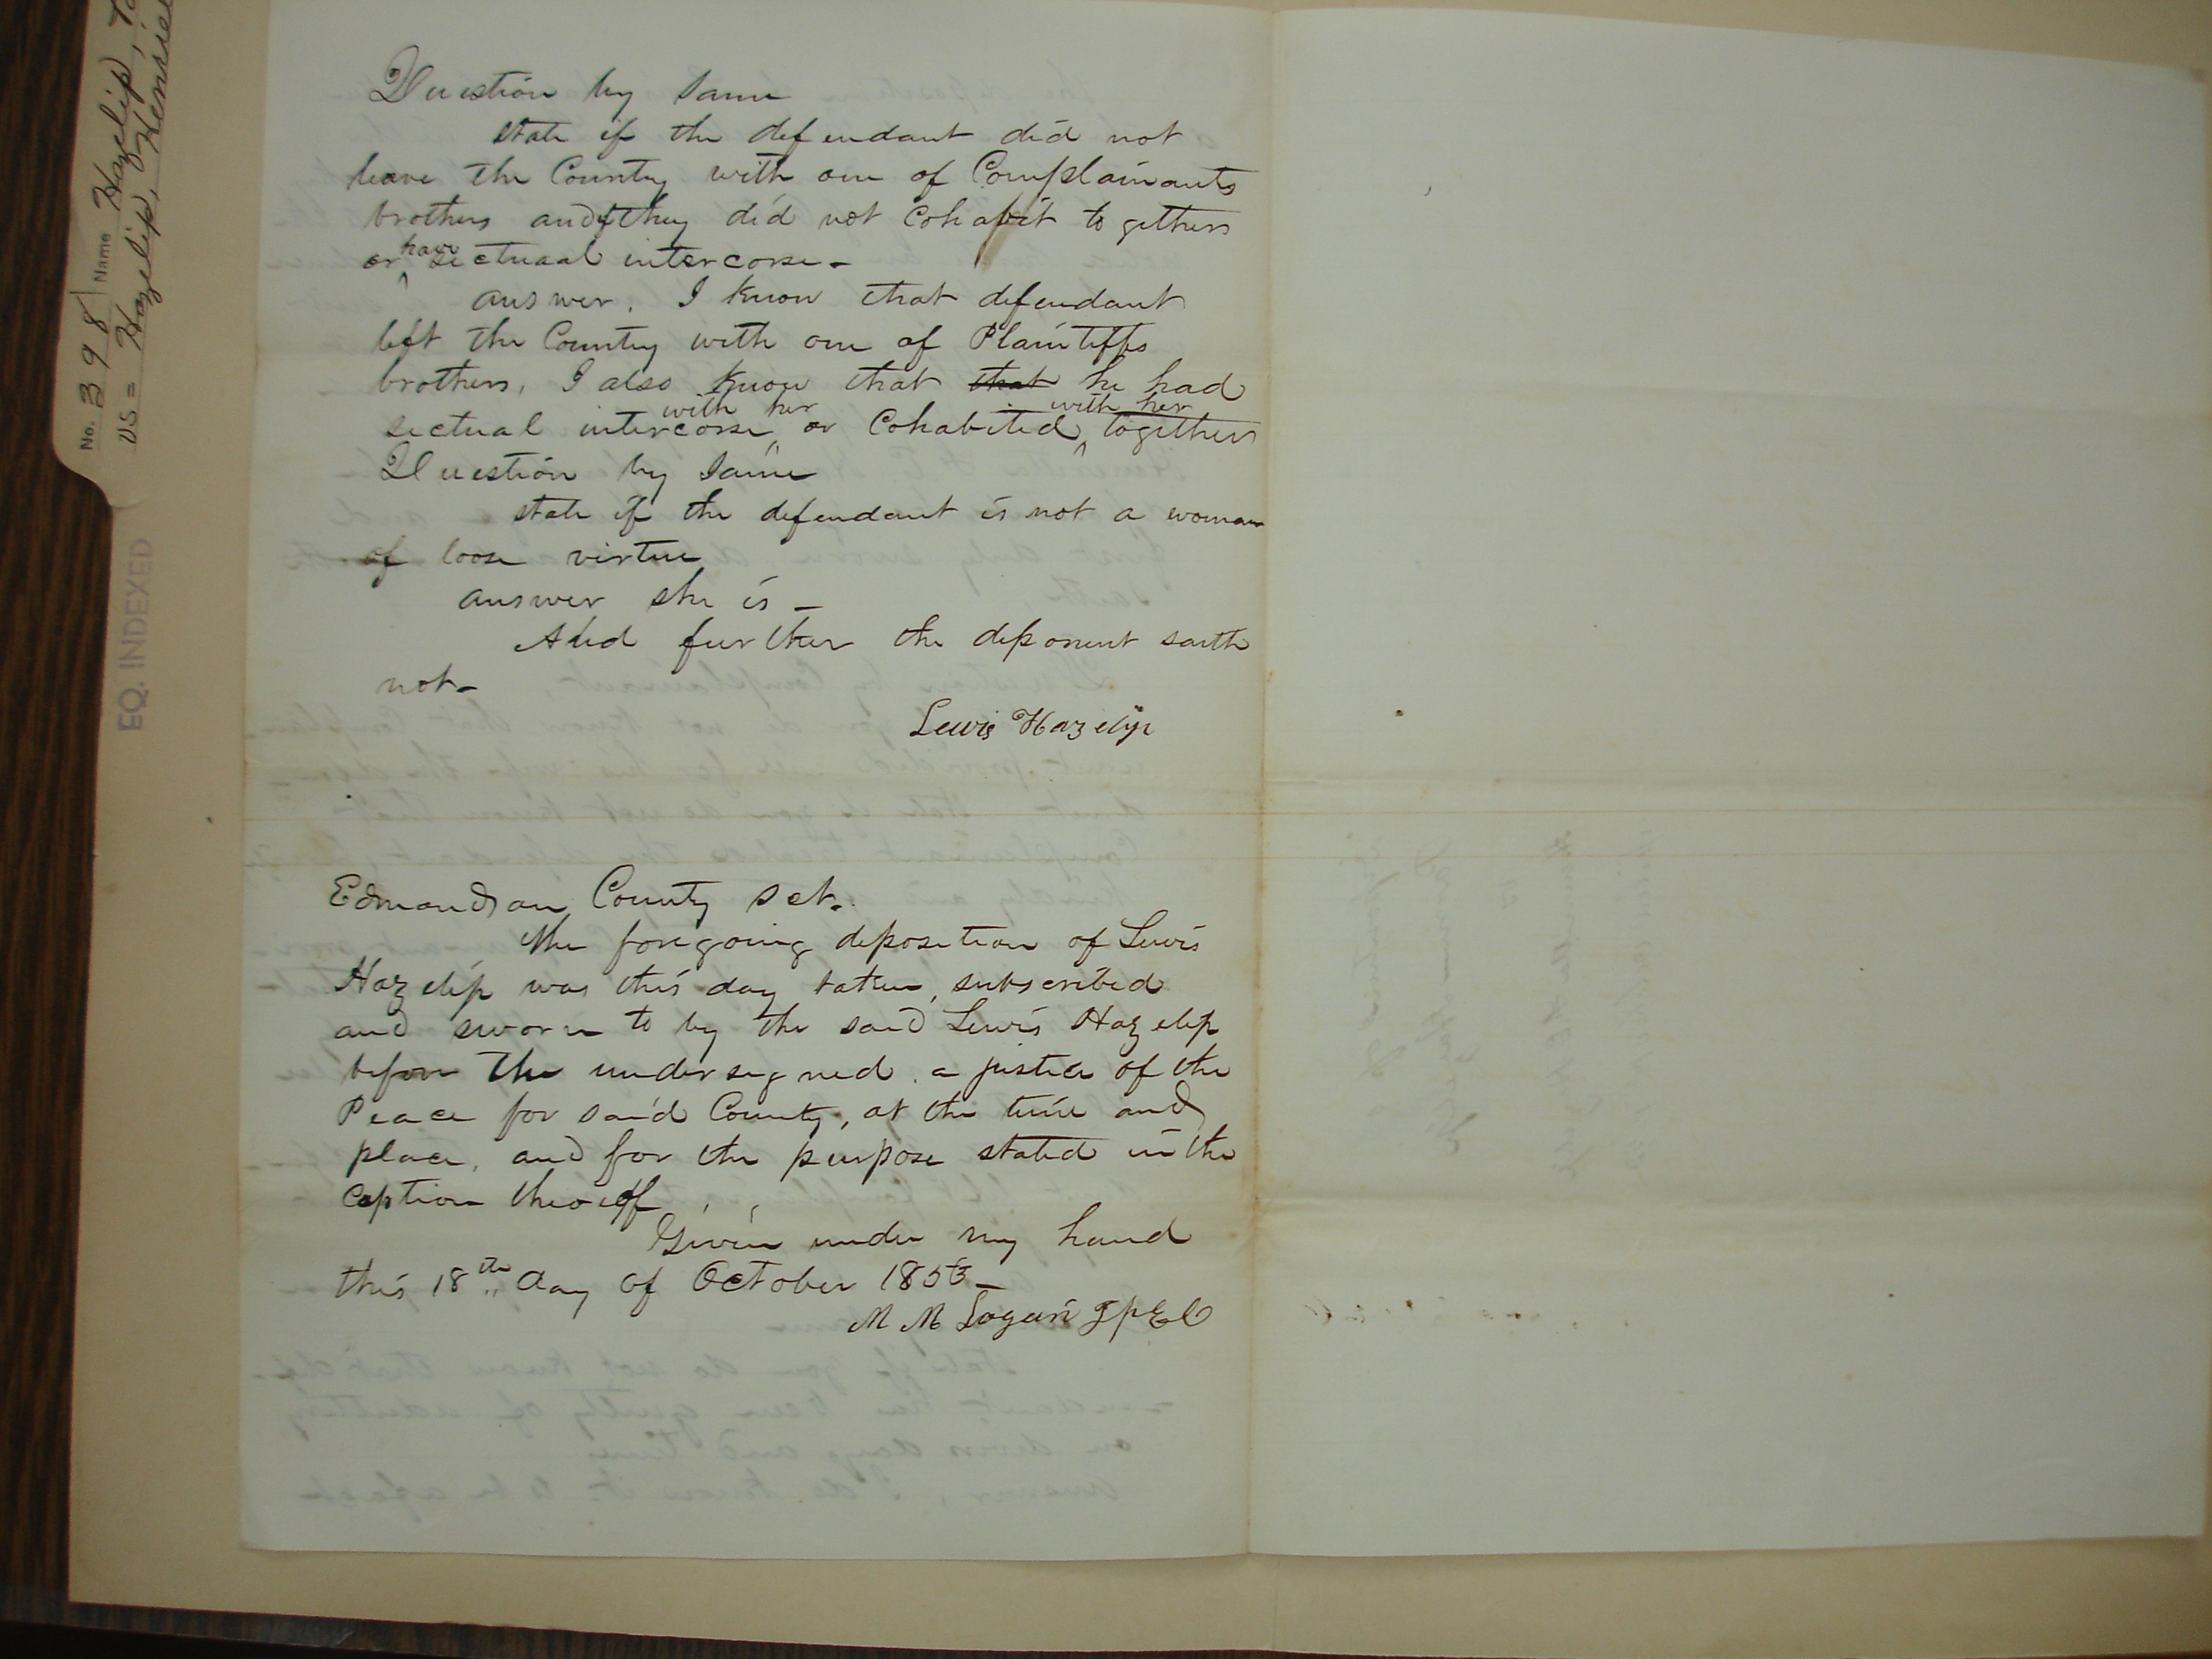 No. 398 Name Hazelip,
vs = Hazelip, Hensie
EQ. INDEXED
Question by same
state if the defendant did not
leave the County with one of Complainants
brothers and if they did not Cohabit to gethers
or have sectuaal intercorse -
answer. I know that defendant
left the County with one of Plaintiffs
brothers, I also know that that he had
sectual intercorse with her or Cohabited with her togethers
Question by same
state if the defendant is not a woman
of loose virtue
answer she is -
And further the deponent saith
not -
Lewis Hazelip
Edmondson County sct.
The foregoing deposition of Lewis
Hazelip was this day taken, subscribed
and sworn to by the said Lewis Hazelip
before The undersigned a justice of the
Peace for said County, at the time and
place, and for the purpose stated in the
Caption theoreof
Given under my hand
this 18th day of October 1853 -
M M Logan JPEC